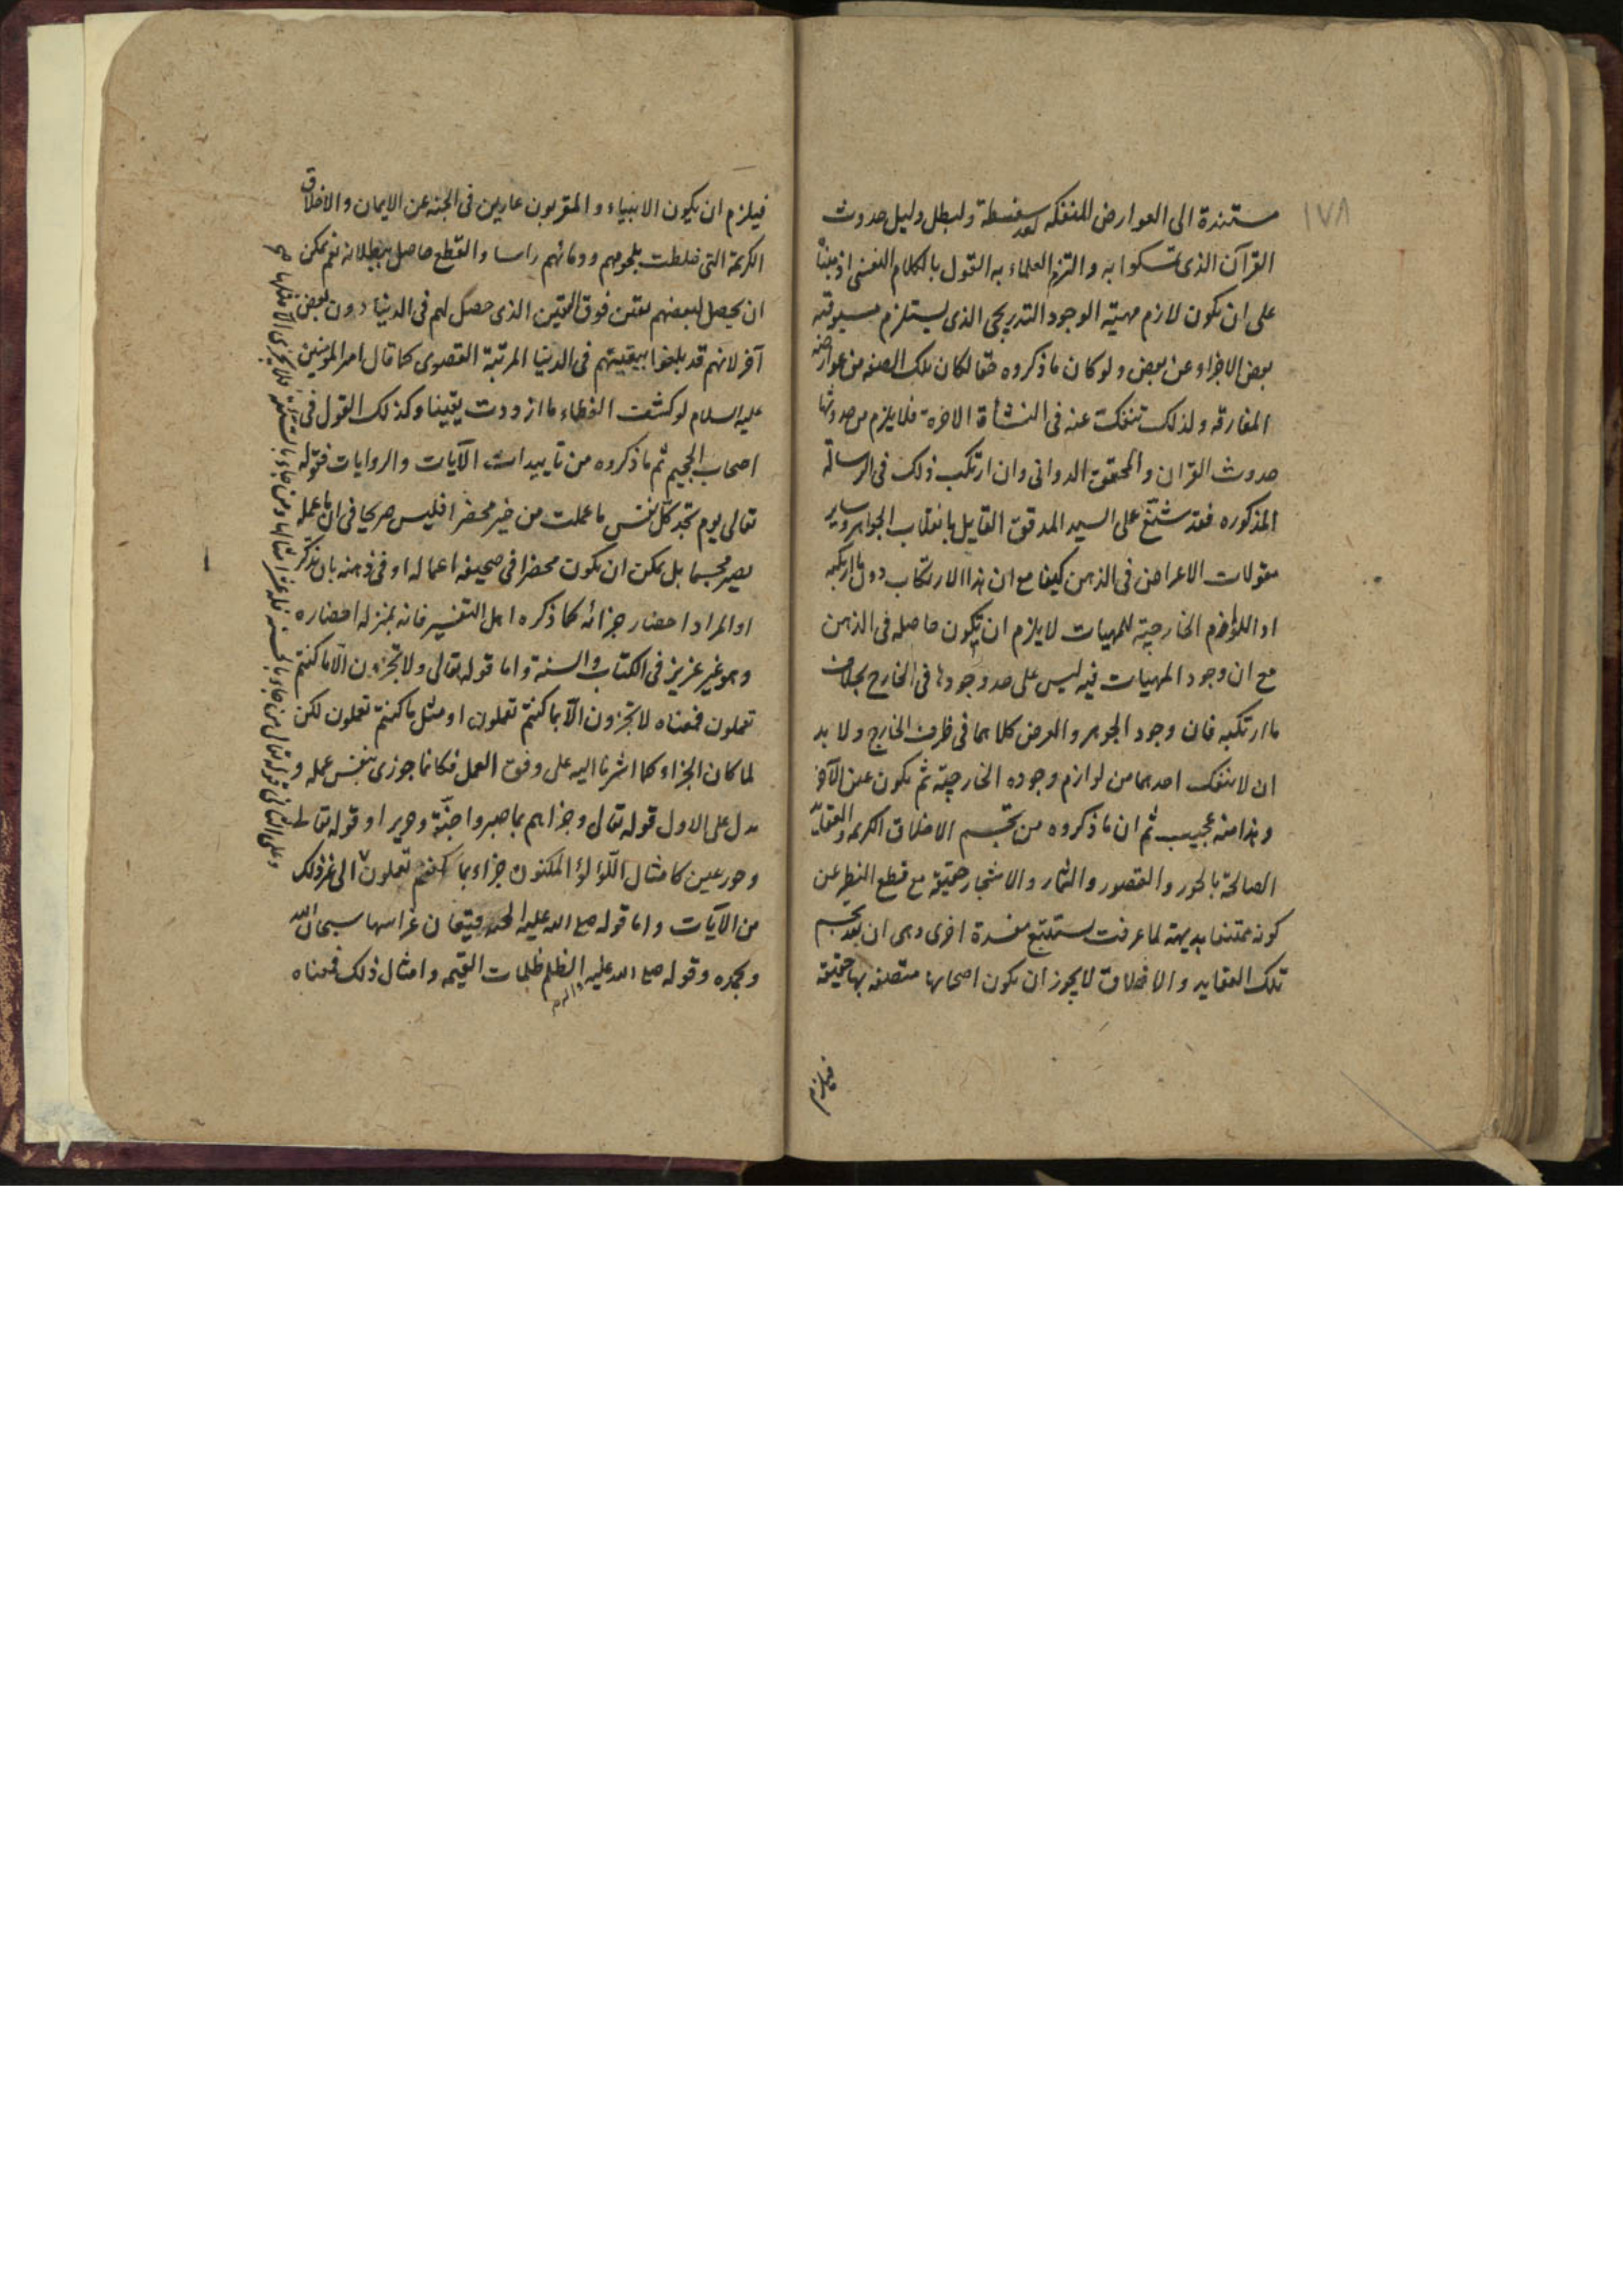 ١٧٨
مستندة الى العوارض المنفكه سفسطة ولبطل دليل حدوث
القرآن الذى تمسكوا به والتزم العلماء به القول بالكلام النفسى اذ مبناه
على ان يكون لازم مهيته الوجود التدريجى الذى يستلزم مسبوقية
بعض الاجزاء عن بعض ولو كان ما ذكروه حقا لكان تلك الصفه من عوارضه
المفارقه ولذلك تنفكت عنه فى النشأة الاخرة فلا يلزم من حدوثها
حدوث القران والمحقق الدوانى وان ارتكب ذلك فى الرسالة
المذكوره فقد شنّع على السيد المدقق القايل بانقلاب الجواهر وساير
مقولات الاعراض فى الذهن كيفا مع ان هذا الارتكاب دون ما ارتكبه
اذ اللوازم الخارجية للمهيات لا يلزم ان يكون حاصله فى الذهن
مع ان وجود المهيات فيه ليس على حد وجودها فى الخارج بخلاف
ما ارتكبه فان وجود الجوهر والعرض كلاهما فى ظرف الخارج ولا بد
ان لا ينفك احدهما من لوازم وجوده الخارجية ثم يكون عين الآخر
وهذا منه عجيب ثم ان ما ذكروه من تجسم الاخلاق الكريمه والعقايد
الصالحة بالحور والقصور والثمار والاشجار حقيقة مع قطع النظر عن
كونه ممتنعا بديهة لما عرفت يستتبع مفسدة اخرى وهى ان بعد تجسم
تلك العقايد والاخلاق لا يجوز ان يكون اصحابها متصفه بها حقيقة
فيلزم
فيلزم ان يكون الانبياء والمقربون عارين فى الجنه عن الايمان والاخلاق
الكريمة التى خلطت بلحومهم ودمائهم راسا والقطع حاصل ببطلانه نعم يمكن
ان يحصل لبعضهم يقين فوق اليقين الذى حصل لهم فى الدنيا دون بعض
آخر لانهم قد بلغوا بيقينهم فى الدنيا المرتبة القصوى كما قال امير المؤمنين
عليه السلام لو كشف الغطاء ما ازددت يقينا وكذلك القول فى
اصحاب الجحيم ثم ما ذكروه من تاييدات الآيات والروايات فقوله
تعالى يوم تجد كل نفس ما عملت من خير محضرا فليس صريحا فى ان ما عمله
يصير مجسما بل يمكن ان يكون محضرا فى صحيفه اعماله او فى ذهنه بان يتذكر
او المراد احضار جزائه كما ذكره اهل التفسير فانه بمنزله احضاره
وهو غير عزيز فى الكتاب والسنة واما قوله تعالى ولا تجزون الا ما كنتم
تعملون فمعناه لا تجزون الا بما كنتم تعملون او مثل ما كنتم تعملون لكن
لما كان الجزاء كما اشرنا اليه على وفق العمل فكانما جوزى بنفس عمله و
يدل على الاول قوله تعالى وجزاهم بما صبروا جنّة وحريرا وقوله تعالى
وحور عين كامثال اللؤلؤ المكنون جزاء بما كنتم تعملون الى غير ذلك
من الآيات واما قوله صلع الله عليه الجنه قيعان غراسها سبحان الله
وبحمده وقوله صلع الله عليه واله وسلم الظلم ظلمات القيمه وامثال ذلك فمعناه
وعلى الثانى قوله تعالى من جاء بالحسنه فله عشر امثالها ومن جاء بالسيئة فلا يجزى الا مثلها